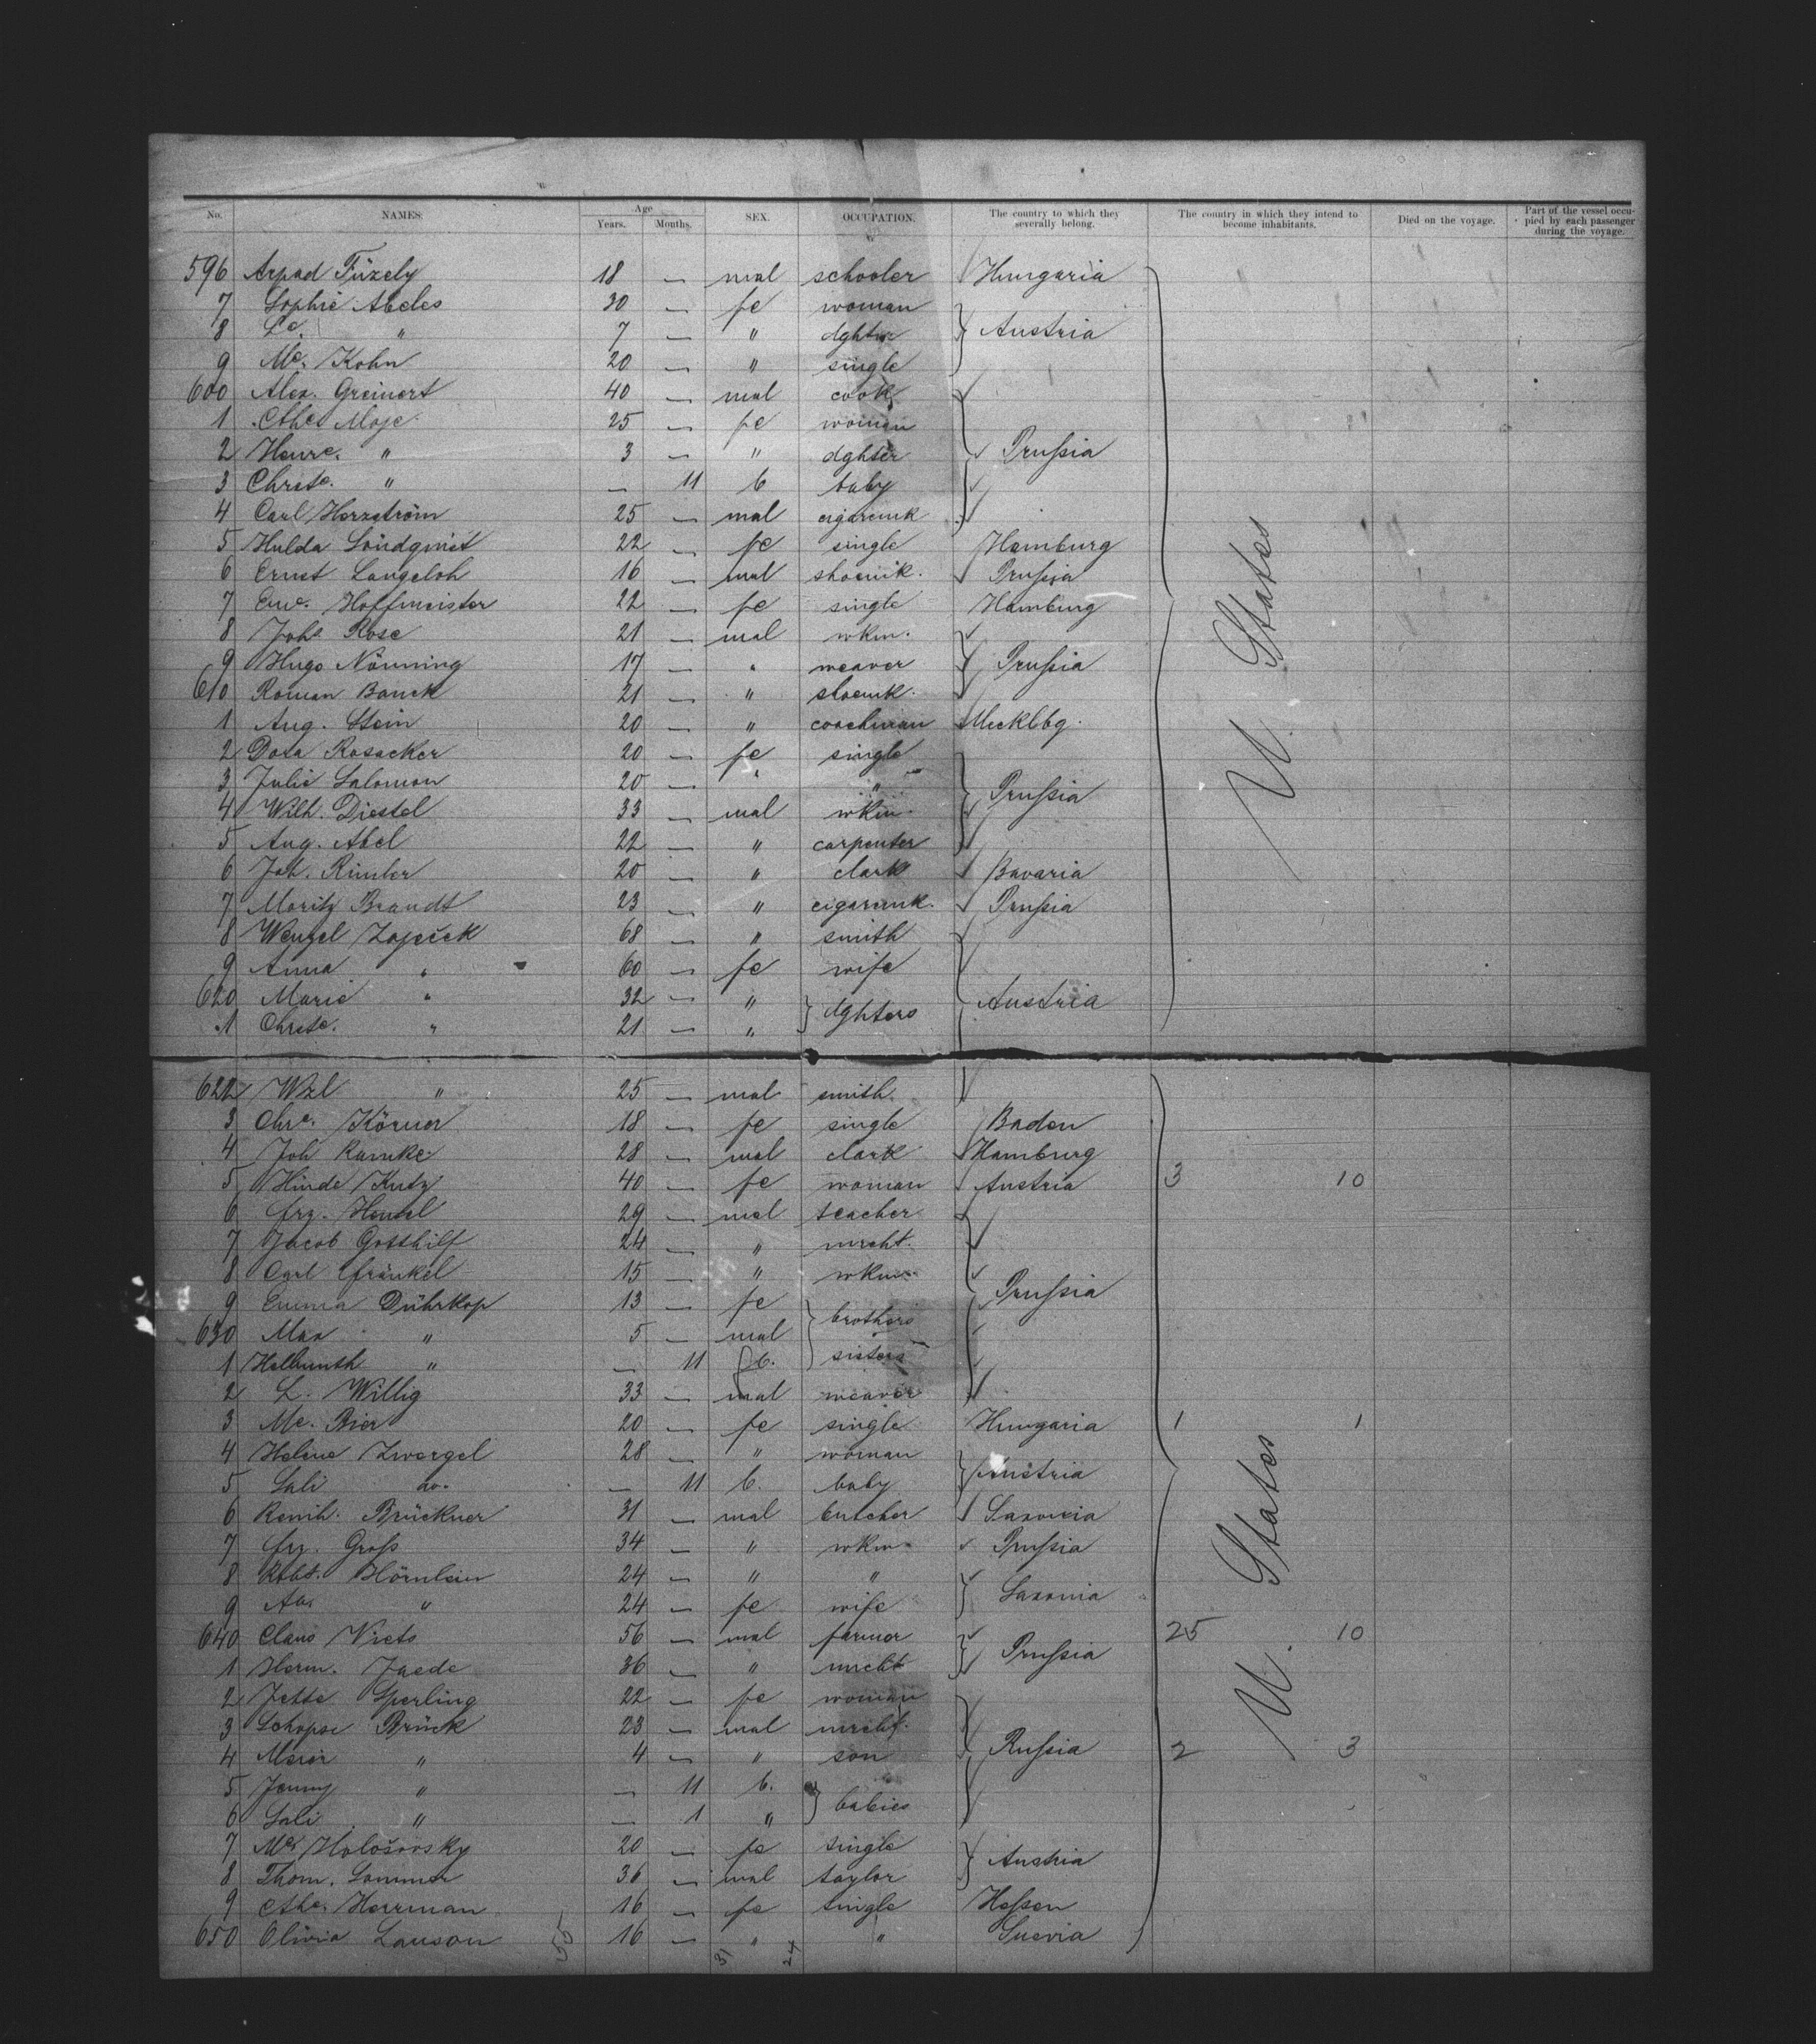 No. NAMES. Age Years. Months. SEX. OCCUPATION. The country to which they severally belong. The country in which they intend to become inhabitants. Died on the voyage. Part of the vessel occupied by each passenger during the voyage.
596 Arpad Füzely 18 — mal schooler Hungaria
7 Sophie Abeles 30 — fe woman
8 " 7 — " dghter Austria
9 Me. Kohn 20 — " single
600 Alex. Greinert 40 — mal cook
1 Cthe Moje 25 — fe woman
2 Henre. " 3 — " dghter Prußia
3 Christe. " — 11 b baby
4 Carl Herzström 25 — mal cigarmk
5 Hulda Löndqvist 22 — fe single Hamburg
6 Ernst Langeloh 16 — mal shoemk. Prußia
7 Hoffmeister 22 — fe single Hamburg
8 Johs Rose 21 — mal wkm.
9 Hugo Nönning 17 — " weaver Prußia
610 Roman Banck 21 — " shoemk.
1 Aug. Stein 20 — " coachman Mecklbg.
2 Dora Rosacker 20 — fe single
3 Julie Salomon 20 — " "
4 Wilh. Diestel 33 — mal wkm. Prußia
5 Aug. Abel 22 — " carpenter
6 Joh. Rimler 20 — " clark Bavaria
7 Moritz Brandt 23 — " cigarmk. Prußia
8 Wenzel Zaječek 68 — " smith
9 Anna " 60 — fe wife
620 Marie " 32 — " dghters Austria
1 Christe. " 21 — "
U. States
622 Wzl " 25 — mal smith
3 Chre. Körner 18 — fe single Baden
4 Joh Ramke 28 — mal clark Hamburg
5 Hinde Kutz 40 — fe woman Austria 3 10
6 Frz. Hensel 29 — mal teacher
7 Jacob Gotthilf 24 — " mrcht.
8 Carl Fränkel 15 — " wkm.
9 Emma Dührkop 13 — fe brothers Prußia
630 Max " 5 — mal
1 Hellmuth " — 11 b. sisters
2 L. Willig 33 — mal weaver
3 Me. Bier 20 — fe single Hungaria 1 1
4 Helene Zwergel 28 — " woman
5 Sali do. — 11 b. baby Austria
6 Reinh. Brückner 31 — mal butcher Saxonia
7 Frz. Groß 34 — " wkm. Prußia
8 Robt. Hörnlein 24 — " "
9 " 24 — fe wife Saxonia
640 Claus Viets 56 — mal farmer 25 10
1 Herm. Jaede 36 — " mrcht Prußia
2 Jette Sperling 22 — fe woman
3 Schopse Brück 23 — mal mrcht.
4 Meier " 4 — " son Rußia 2 3
5 Jenny " — 11 b.
6 Sali " — 1 " babies
7 Me. Hološovsky 20 — fe single
8 Thom. Sommer 36 — mal taylor Austria
9 Cthe. Herrman 16 — fe single Heßen
650 Olivia Lauson 16 — " " Suevia
U. States
55 31 24